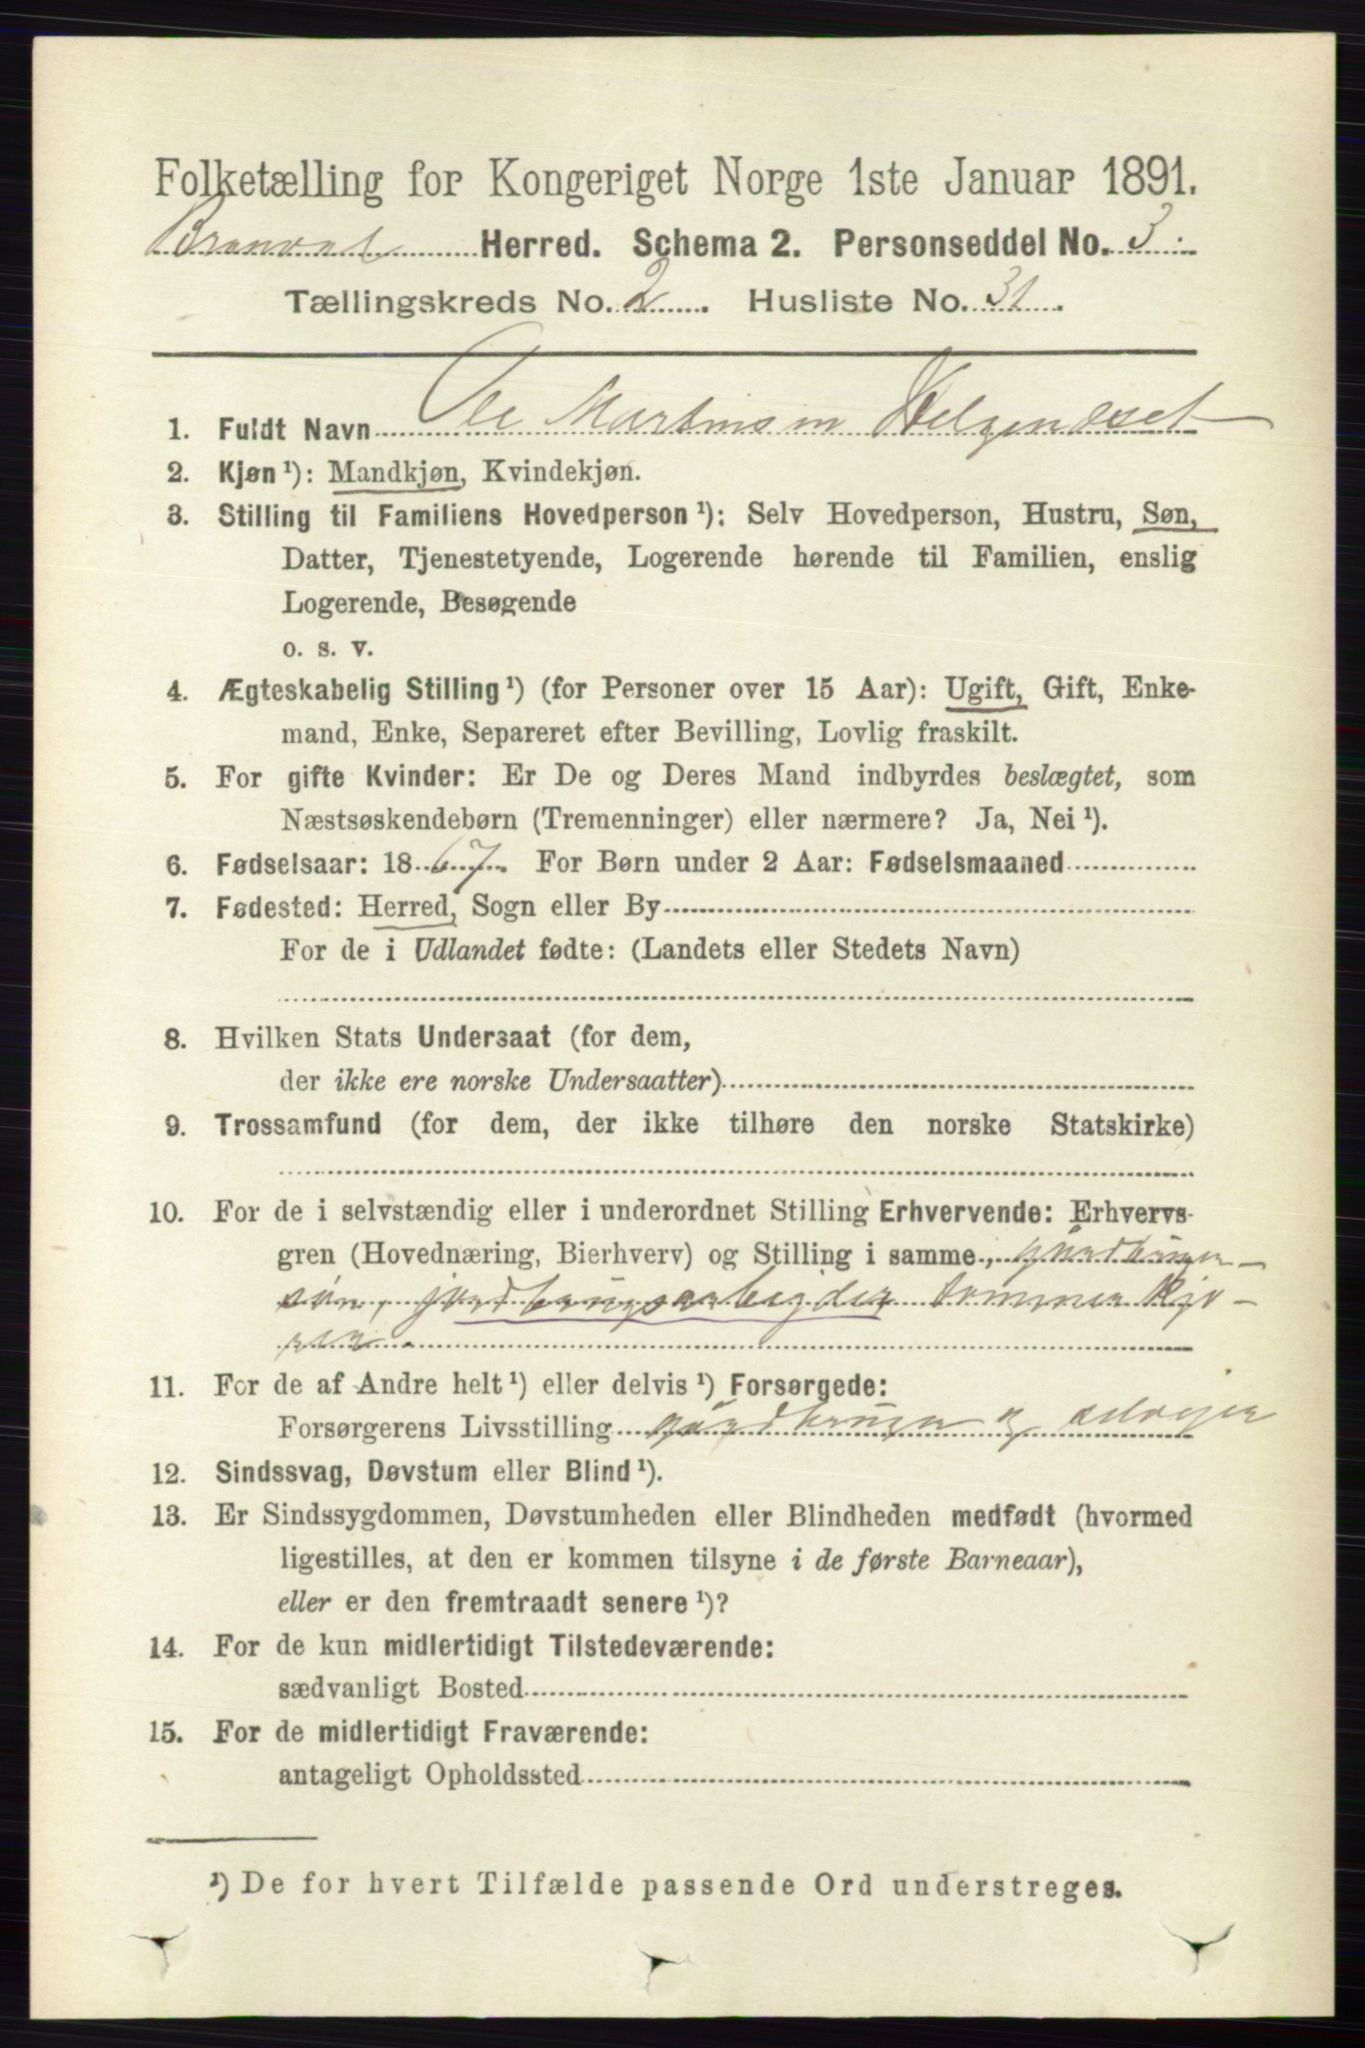 Folketælling for Kongeriget Norge 1ste Januar 1891.
Branval Herred. Schema 2. Personseddel No. 3.
Tællingskreds No. 2. Husliste No. 31.
1. Fuldt Navn Ole Martinsen Helgendset
2. Kjøn ¹): Mandkjøn, Kvindekjøn.
3. Stilling til Familiens Hovedperson ¹): Selv Hovedperson, Hustru, Søn,
Datter, Tjenestetyende, Logerende hørende til Familien, enslig
Logerende, Besøgende
o. s. v.
4. Ægteskabelig Stilling ¹) (for Personer over 15 Aar): Ugift, Gift, Enke-
mand, Enke, Separeret efter Bevilling, Lovlig fraskilt.
5. For gifte Kvinder: Er De og Deres Mand indbyrdes beslægtet, som
Næstsøskendebørn (Tremenninger) eller nærmere? Ja, Nei ¹).
6. Fødselsaar: 1867. For Børn under 2 Aar: Fødselsmaaned
7. Fødested: Herred, Sogn eller By
For de i Udlandet fødte: (Landets eller Stedets Navn)
8. Hvilken Stats Undersaat (for dem,
der ikke ere norske Undersaatter)
9. Trossamfund (for dem, der ikke tilhøre den norske Statskirke)
10. For de i selvstændig eller i underordnet Stilling Erhvervende: Erhvervs-
gren (Hovednæring, Bierhverv) og Stilling i samme, gaardbruger-
søn, jordbrugsarbeider tømmer kjø-
rer.
11. For de af Andre helt ¹) eller delvis ¹) Forsørgede:
Forsørgerens Livsstilling gaardbruger og selveier
12. Sindssvag, Døvstum eller Blind ¹).
13. Er Sindssygdommen, Døvstumheden eller Blindheden medfødt (hvormed
ligestilles, at den er kommen tilsyne i de første Barneaar),
eller er den fremtraadt senere ¹)?
14. For de kun midlertidigt Tilstedeværende:
sædvanligt Bosted
15. For de midlertidigt Fraværende:
antageligt Opholdssted
¹) De for hvert Tilfælde passende Ord understreges.